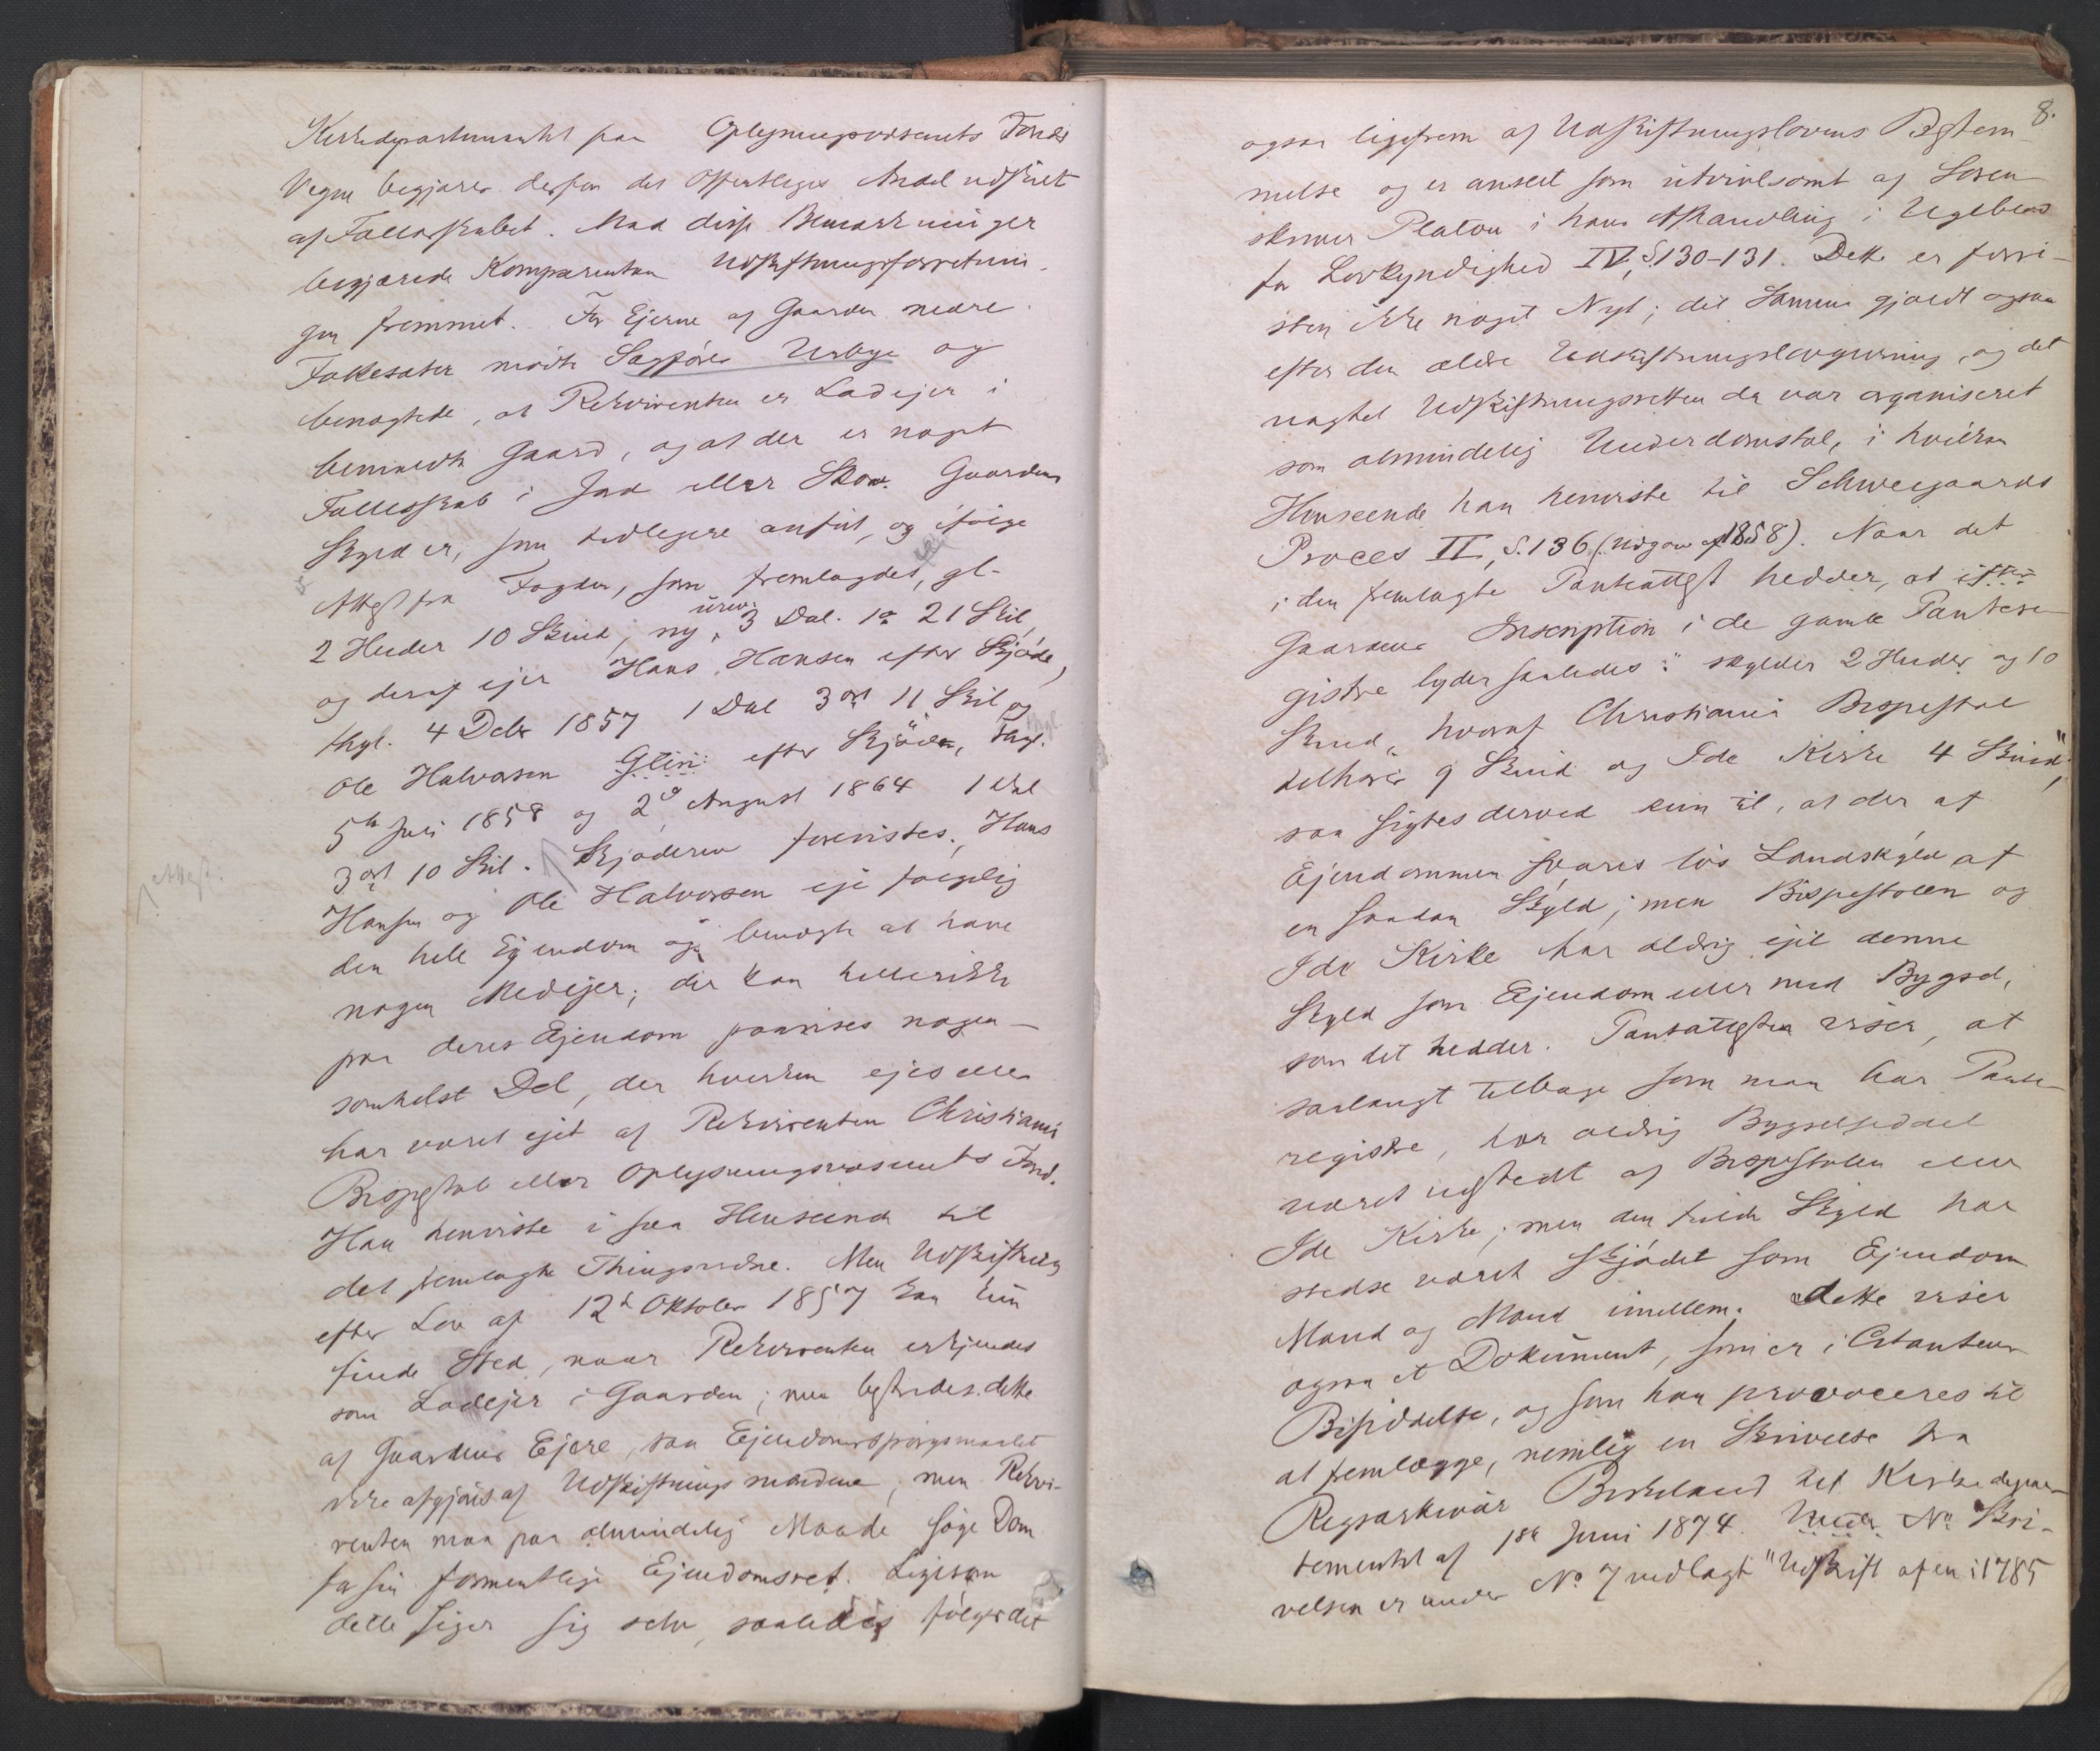 Kirkedepartementet paa Oplysningsvæsenets Fonds
Vegne begjærer derfor det Offentliges Andel udskiftet
af Fællesskabet. Med disse Bemærkninger
begjærede Komparenten Udskiftningsforretnin-
gen fremmet. For Ejerne af Gaarden nedre
Folkesæter mødte Sagfører Urbye og
benægtede, at Rekvirenten er Lodejer i
benævnte Gaard, og at der er noget
Fællesskab i Jord eller Skov. Gaardens
Skyld er, som tidligere anført, og ifølge
Attest fra Fogden, som fremlagdes, gl.
2 Huder 10 Skind, ny urev. 3 Dal. 1 ort 21 Skil,
og deraf ejer Hans Hansen efter Skjøde,
thgl. 4 Debr 1857 1 Dal 3 ort 11 Skil og
Ole Halvorsen Glin efter Skjøder, thgl.
5te Juli 1858 og 2den August 1864 1 Dal
3 ort 10 Skil. Skjøderne forevistes. Hans
attest.
Hansen og Ole Halvorsen eje følgelig
den hele Ejendom og benægte at have
nogen Medejer; der kan heller ikke
paa deres Ejendom paavises nogen-
somhelst Del, der hverken ejes eller
har været ejet af Rekvirenten Christiania
Bispestol eller Oplysningsvæsenets Fond.
Han henviste i saa Henseende til
det fremlagte Thingsvidne. Men Udskiftning
efter Lov af 12te Oktober 1857 kan kun
finde Sted, naar Rekvirenten erkjendes
som Lodejer i Gaarden; men bestrides dette
af Gaardens Ejere, saa Ejendomsspørgsmaalet
ikke afgjøres af Udskiftningsmændene, men Rekvi-
renten maa paa almindelig Maade søge Dom
for sin formentlige Ejendomsret. Ligesom
dette siger sig selv, saaledes følger det
8.
ogsaa ligefrem af Udskiftningslovens Bestem-
melse og er anseet som utvivlsomt af Soren-
skriver Platou i hans Afhandling i Ugeblad
for Lovkyndighed IV, S. 130-131. Dette er forre-
sten ikke noget Nyt; det Samme gjaldt ogsaa
efter den ældre Udskiftningslovgivning, og det
uagtet Udskiftningsretten da var organiseret
som almindelig Underdomstol, i hvilken
Henseende han henviste til Schweigaards
Proces II, S. 136 (Udgave af 1858). Naar det
i den fremlagte Panteattest hedder, at
Gaardens Inscription i de gamle Pantere-
gistre lyder saaledes: "skylder 2 Huder og 10
Skind, hvoraf Christiania Bispestol
tilhører 9 Skind og Ide Kirke 4 Skind",
saa sigtes derved kun til, at der af
Ejendommen svares løs Landskyld af
en saadan Skyld; men Bispestolen og
Ide Kirke har aldrig ejet denne
Skyld som Ejendom eller med Bygsel,
som det hedder. Panteattesten viser, at
saalangt tilbage som man har Pante-
registre, har aldrig Bygselseddel
været udstedt af Bispestolen eller
Ide Kirke; men den fulde Skyld har
stedse været skjødet som Ejendom
Mand og Mand imellem. Dette viser
ogsaa et Dokument, som er i Citantens
Besiddelse, og som han provoceres til
at fremlægge, nemlig en Skrivelse fra
Rigsarkivar Birkeland til Kirkedepar-
tementet af 18de Juni 1874. Under No Skri-
velsen er under No 7 vedlagt "Udskrift af en i 1785